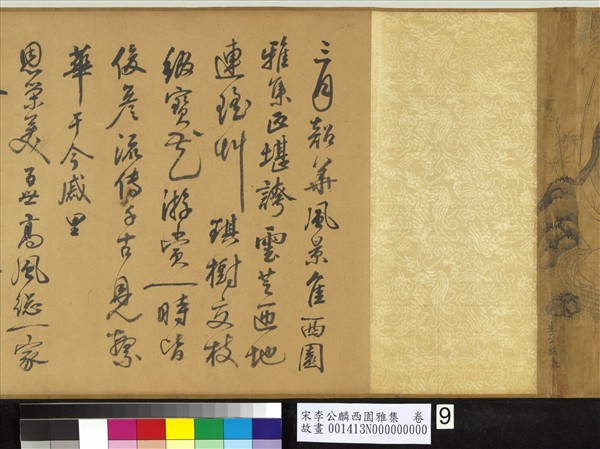 三月韶華風景佳西園
雅集正堪誇雲芝匝地
連瑤艸琪樹交枝
綴寶花游賞一時皆
俊彥流傳千古見繁
華于今戚里
恩榮美百世高風總一家
宋李公麟西園雅集 卷
故畫 001413N000000000
9